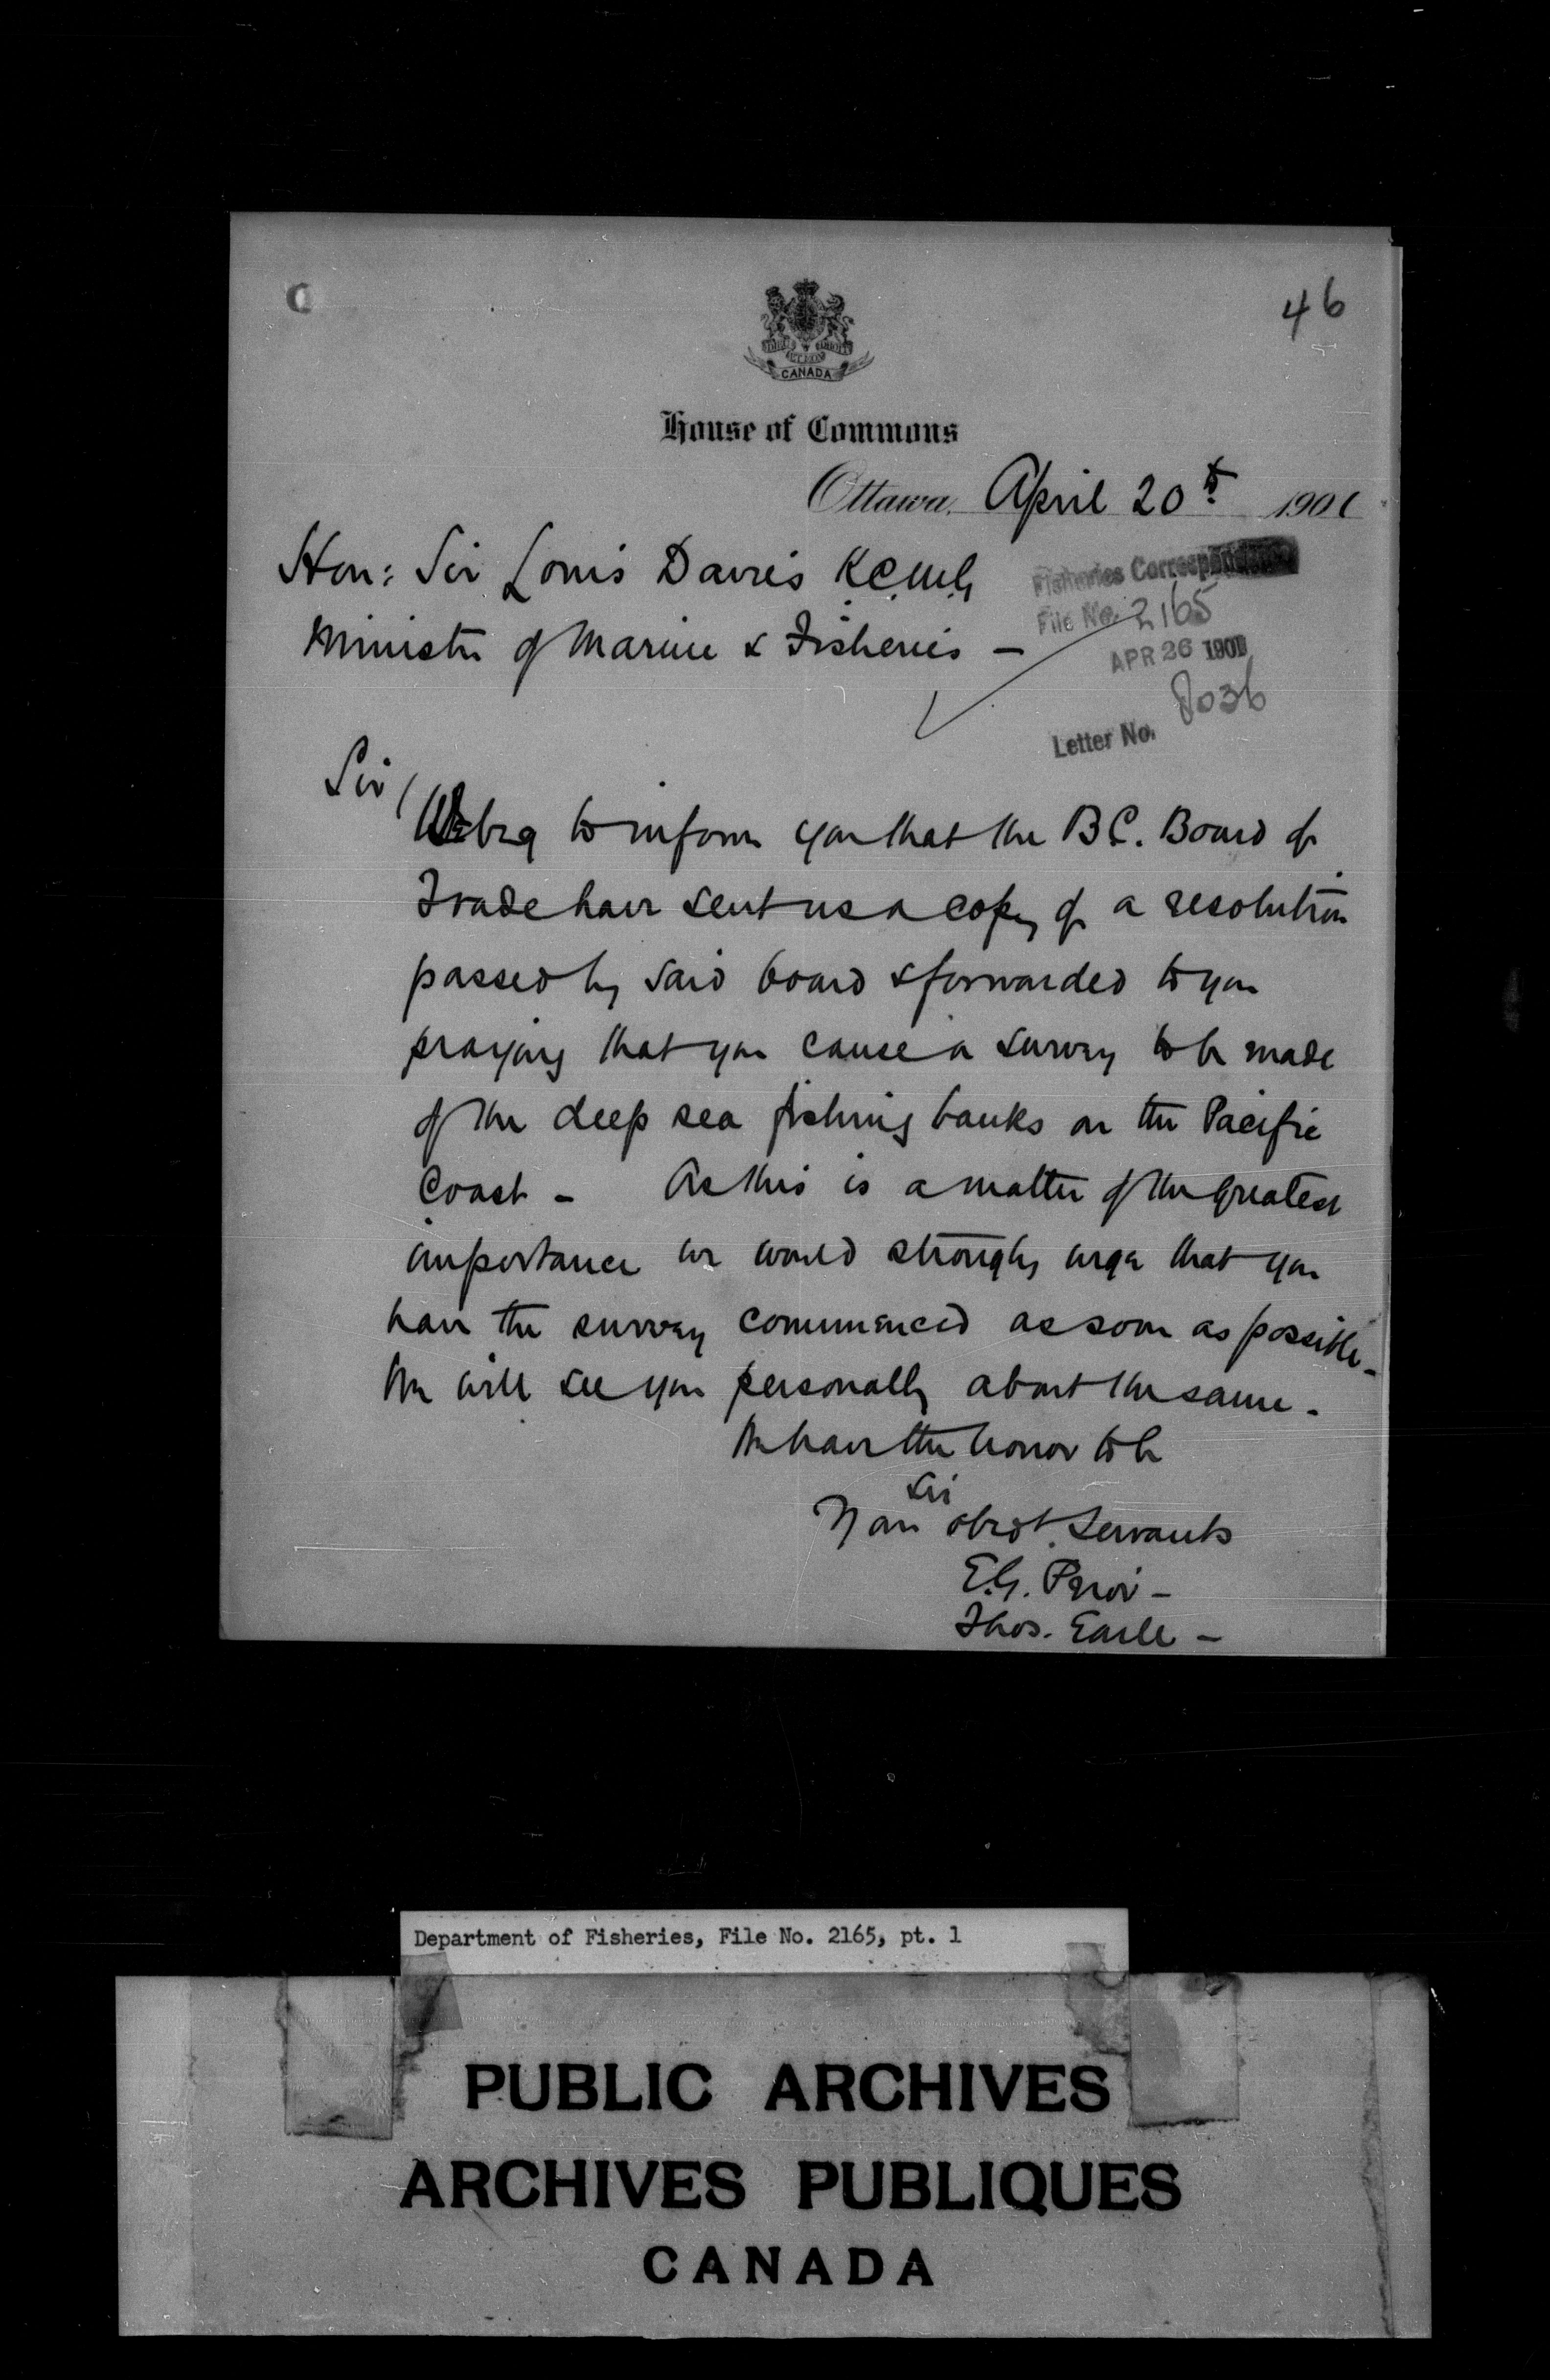 C
46
CANADA
House of Commons
Ottawa, April 20th 1901
Hon: Sir Louis Davies K.C.M.G
Minister of Marine & Fisheries –
Fisheries Correspondence
File No. 2165
APR 26 1901
Letter No. 8036
Sir/
We beg to inform you that the B.C. Board of
Trade have sent us a copy of a resolution
passed by said board & forwarded to you
praying that you cause a survey to be made
of the deep sea fishing banks on the Pacific
Coast – As this is a matter of the greatest
importance we would strongly urge that you
have the survey commenced as soon as possible –
We will see you personally about the same –
We have the honor to be
Sir
Your obedt. Servants
E.G. Prior –
Thos. Earle –
Department of Fisheries, File No. 2165, pt. 1
PUBLIC ARCHIVES
ARCHIVES PUBLIQUES
CANADA